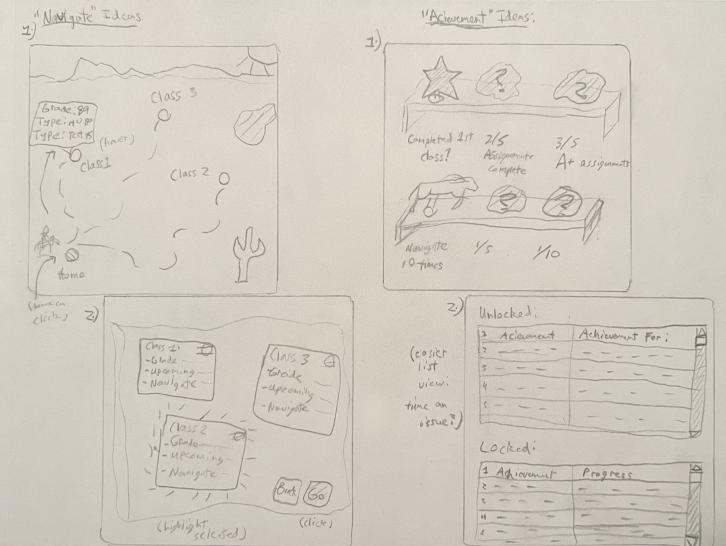 "Navigate" Ideas
1.)
Class 3
Grade: 89
Type:
Type:
(hover)
Class 1
Class 2
Home
click)
2.)
Class 1:
-Grade
-upcoming
-Navigate
Class 3
-Grade
-upcoming
-Navigate
Class 2
-Grade
-upcoming
-Navigate
Back
Go
(highlight
selected)
(click)
"Acievement" Ideas:
1.)
?
?
Completed 1st
class!
2/5
Assignments
Complete
3/5
A+ assignments
?
?
Navigate
10 times
1/5
1/10
2.)
(easier
list
view:
time an
issue?)
Unlocked:
1 Acievement Achievement For:
2
3
4
5
Locked:
1 Achievement Progress
2
3
4
5